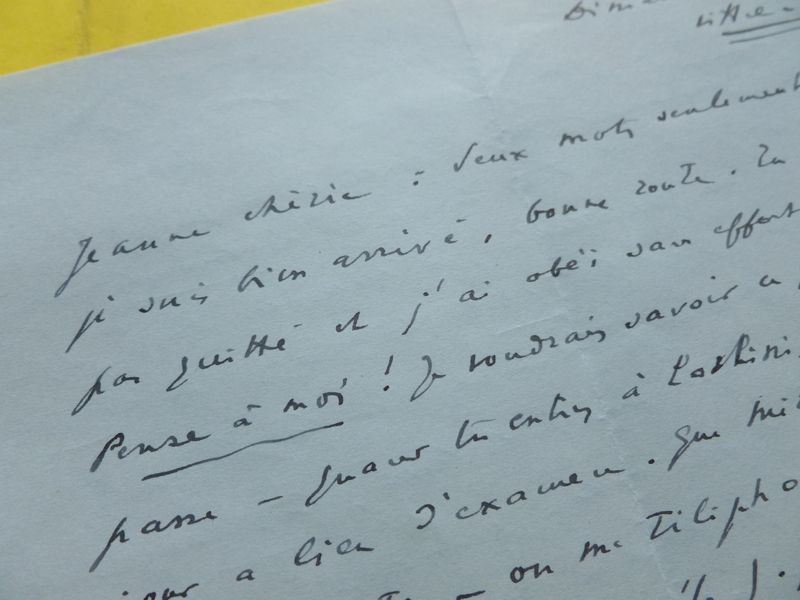 Jeanne chérie : deux mots seulement
je suis bien arrivé, bonne route. Tu
pas quitté et j'ai obéi sans effort
Pense à moi ! Je voudrais savoir ce
passe - quand tu entres à
jour a lieu l'examen. Que
- on me